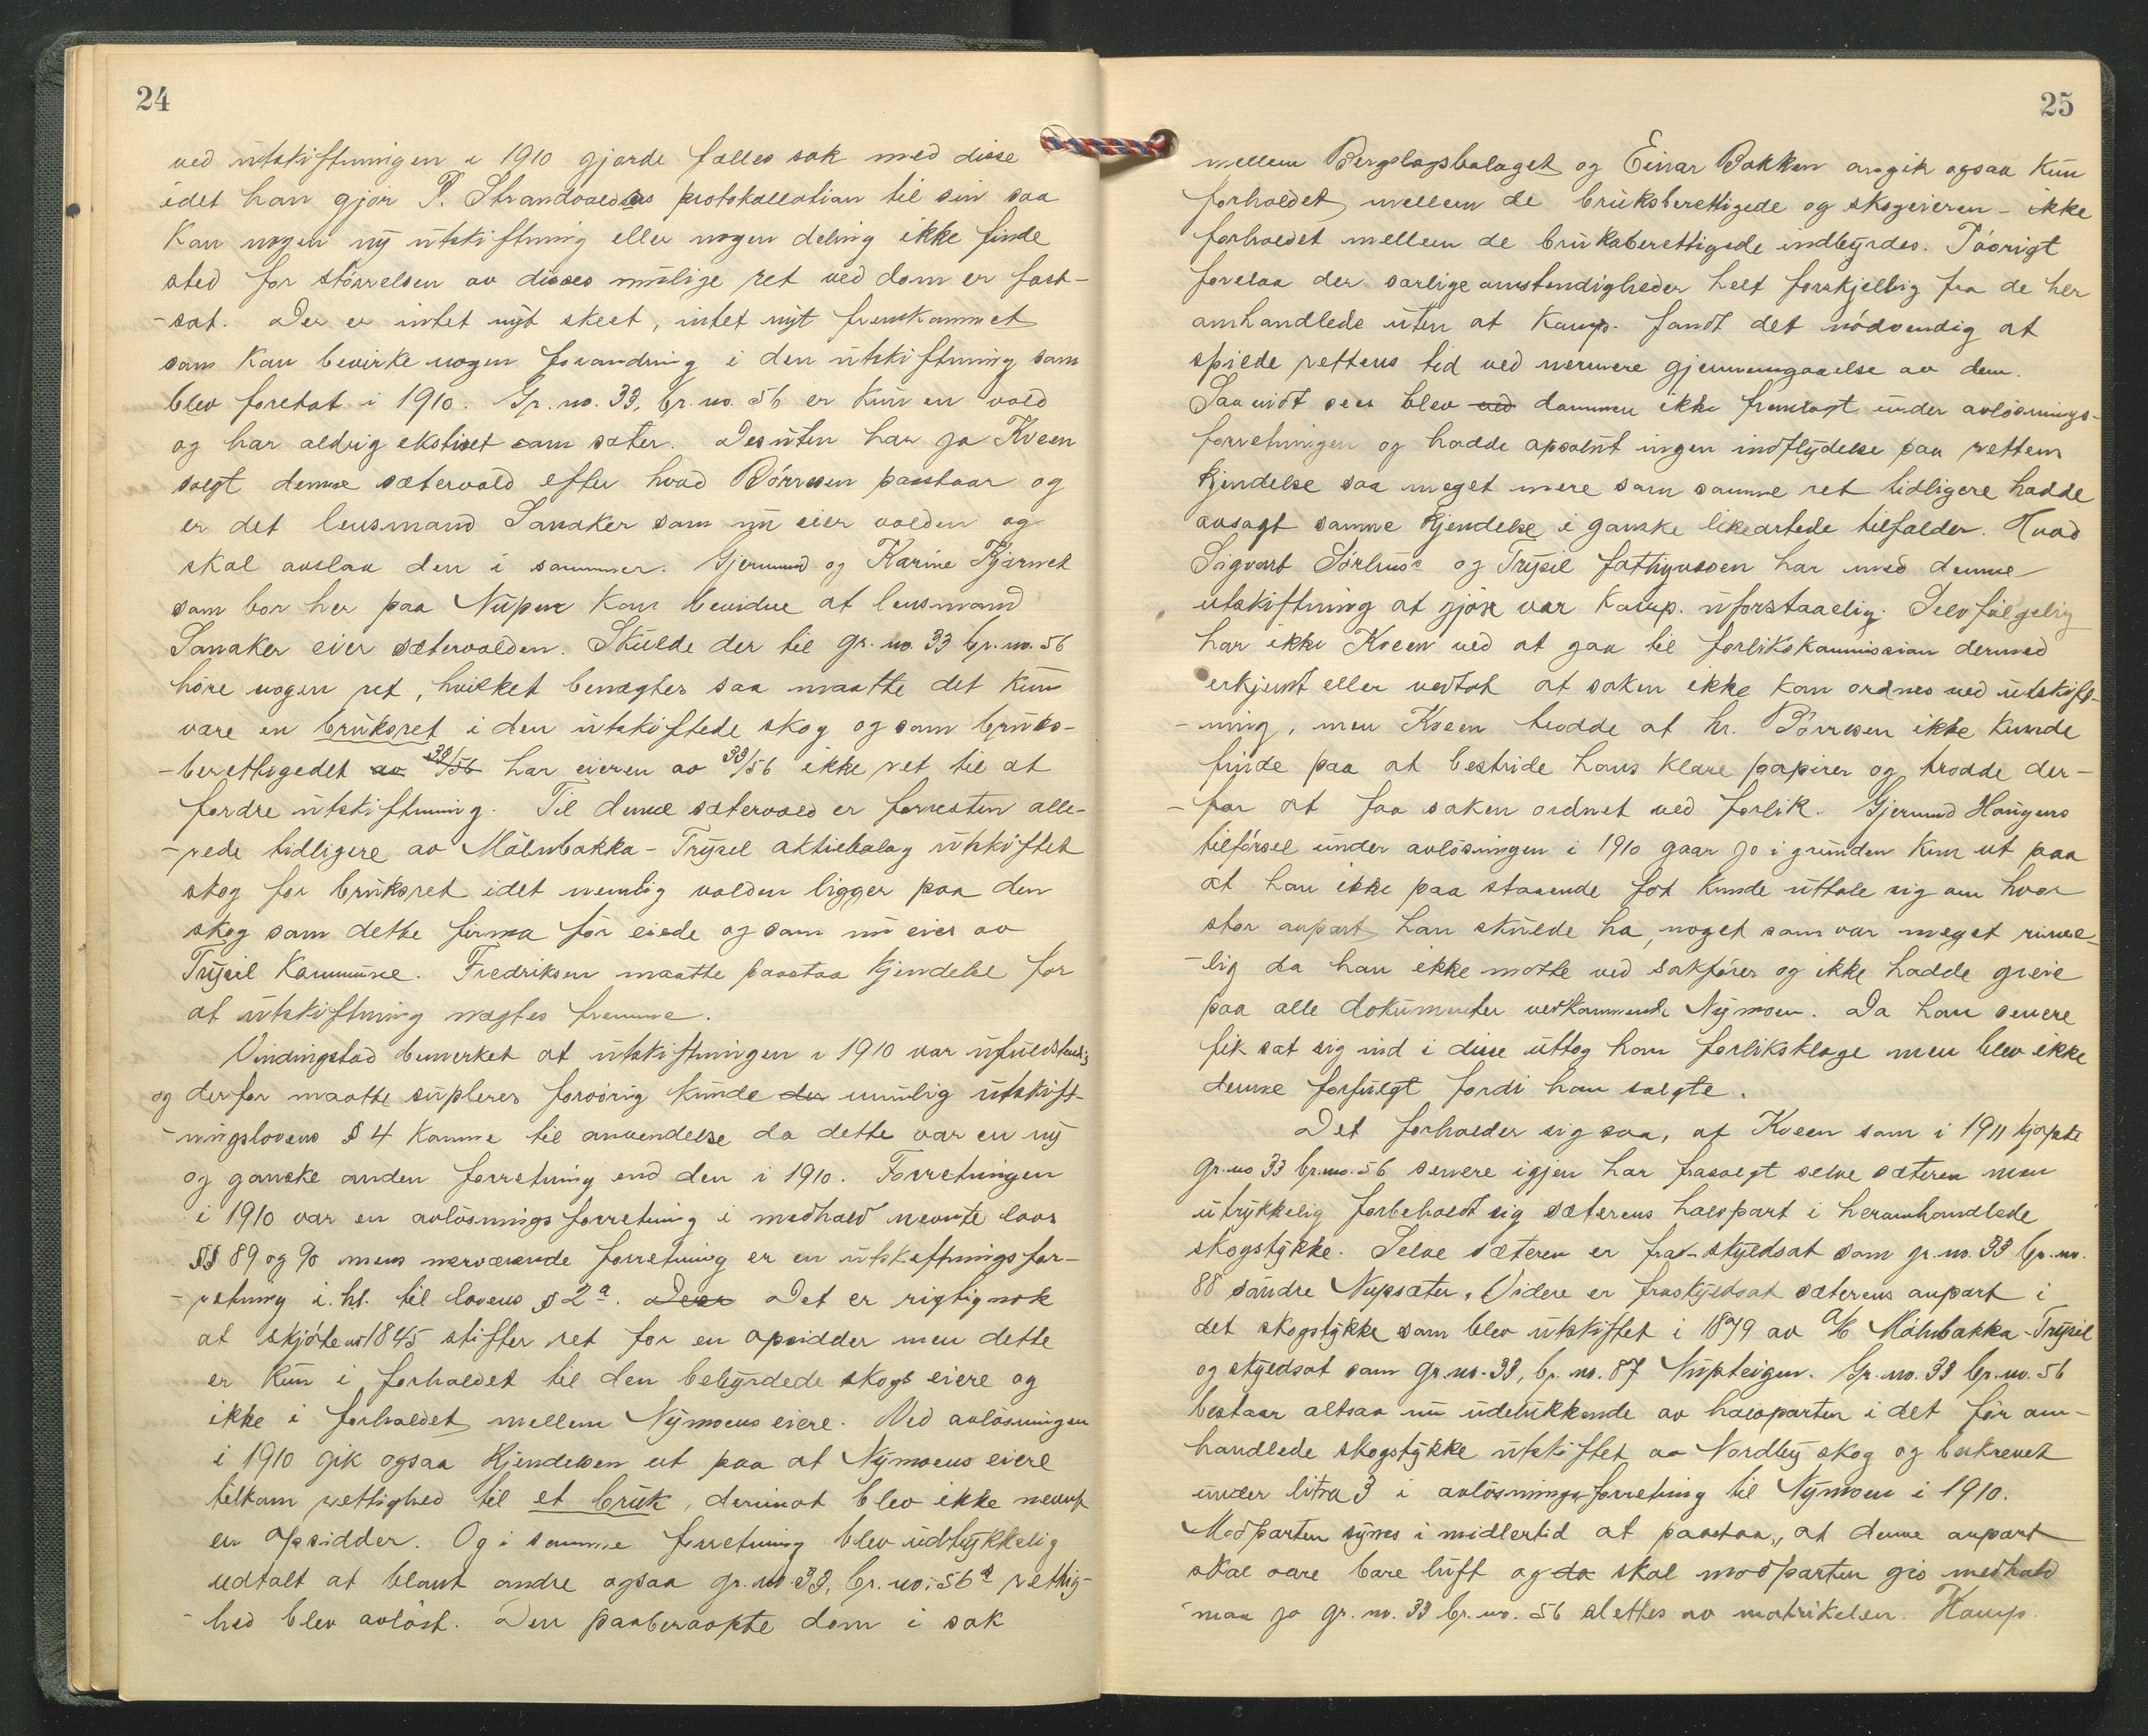 24
ved utskiftningen i 1910 gjorde fælles sak med disse
idet han gjør P. Strandvolds protokollation til sin saa
kan nogen ny utskiftning eller nogen deling ikke finde
sted for størrelsen av disses mulige ret ved dom er fast-
-sat. Der er intet nyt skeet, intet nyt fremkommet
som kan bevirke nogen forandring i den utskiftning som
blev foretat i 1910. Gr. no. 33, br. no. 56 er kun en vold
og har aldrig ekstiset som sæter. Desuten har jo Kveen
solgt denne sætervold efter hvad Børresen paastaar og
er det lensmand Sanaker som nu eier volden og
skal avslaa den i sommer. Gjermund og Karine Kjærnet
som bor her paa Nupen kan bevidne at lensmand
Sanaker eier sætervolden. Skulde der til gr. no. 33 br. no. 56
høre nogen ret, hvilket benægtes saa maatte det kun
være en bruksret i den utskiftede skog og som bruks-
-berettigedet av 33/56 har eieren av 33/56 ikke ret til at
fordre utskiftning. Til denne sætervold er forresten alle-
-rede tidligere av Målnbakka-Trysil aktiebolag utskiftet
skog for bruksret idet nemlig volden ligger paa den
skog som dette firma før eiede og som nu eies av
Trysil Kommune. Fredriksen maatte paastaa kjendelse for
at utskiftning nægtes fremme.
Vindingstad bemerket at utskiftningen i 1910 var ufuldstendig
og derfor maatte supleres forøvrig kunde der umulig utskift-
-ningslovens § 4 komme til anvendelse da dette var en ny
og ganske anden forretning end den i 1910. Forretningen
i 1910 var en avløsningsforretning i medhald nevnte lovs
§§ 89 og 90 mens nærværende forretning er en utskiftningsfor-
-retning i. h. t. til lovens § 2a. Deer Det er rigtignok
at skjøte av 1845 stifter ret for en opsidder men dette
er kun i forholdet til den bebyrdede skogs eiere og
ikke i forholdet mellem Nymoens eiere. Ved avløsningen
i 1910 gik ogsaa kjendelsen ut paa at Nymoens eiere
tilkom rettighed til et bruk, derimot blev ikke nevnt
en opsidder. Og i samme forretning blev udtrykkelig
udtalt at blant andre ogsaa gr. no. 33, br. no. 56s rettig-
-hed blev avløst. Den paaberaapte dom i sak
25
mellem Bergslagsbolaget og Einar Bakken angik ogsaa kun
forholdet mellem de bruksberettigede og skogeieren - ikke
forholdet mellem de bruksberettigede indbyrdes. Iøvrigt
forelaa der særlige omstendigheder helt forskjellig fra de her
omhandlede uten at Kamp. fandt det nødvendig at
spilde rettens tid ved nærmere gjennemgaaelse av dem.
Saavidt sees blev ved dommen ikke fremlagt under avløsnings-
forretningen og hadde apsolut ingen indflydelse paa rettens
kjendelse saa meget mere som samme ret tidligere hadde
avsagt samme kjendelse i ganske likeartede tilfælder. Hvad
Sigvart Sørhus's og Trysil fattigvæsen har med denne
utskiftning at gjøre var Kamp. uforstaaelig. Selvfølgelig
har ikke Kveen ved at gaa til forlikskommission dermed
erkjent eller vedtat at saken ikke kan ordnes ved utskift-
-ning, men Kveen trodde at hr. Børresen ikke kunde
finde paa at bestride hans klare papirer og trodde der-
-for at faa saken ordnet ved forlik. Gjermund Haugens
tilførsel under avløsningen i 1910 gaar jo i grunden kun ut paa
at han ikke paa staaende fot kunde uttale sig om hvor
stor anpart han skulde ha, noget som var meget rime-
-lig da han ikke møtte ved sakfører og ikke hadde greie
paa alle dokumenter vedkommende Nymoen. Da han senere
fik sat sig ind i disse uttog han forliksklage men blev ikke
denne forfulgt fordi han solgte.
Det forholder sig saa, at Kveen som i 1911 kjøpte
gr. no 33 br. no. 56 senere igjen har frasolgt selve sæteren men
utrykkelig forbeholdt sig sæterens halvpart i heromhandlede
skogstykke. Selve sæteren er fra-skyldsat som gr. no. 33 br. no.
88 søndre Nupsæter. Videre er fraskyldsat sæterens anpart i
det skogstykke som blev utskiftet i 1899 av A/B Målnbakka-Trysil
og skyldsat som gr. no. 33, br. no. 87 Nupteigen. Gr. no. 33 br. no. 56
bestaar altsaa nu udelukkende av halvparten i det før om-
handlede skogstykke utskiftet av Nordby skog og beskrevet
under litra 3 i avløsningsforretning til Nymoen i 1910.
Motparten synes i midlertid at paastaa, at denne anpart
skal være bare luft og da skal modparten gis medhald
maa jo gr. no. 33 br. no. 56 slettes av matrikelen. Kamp.